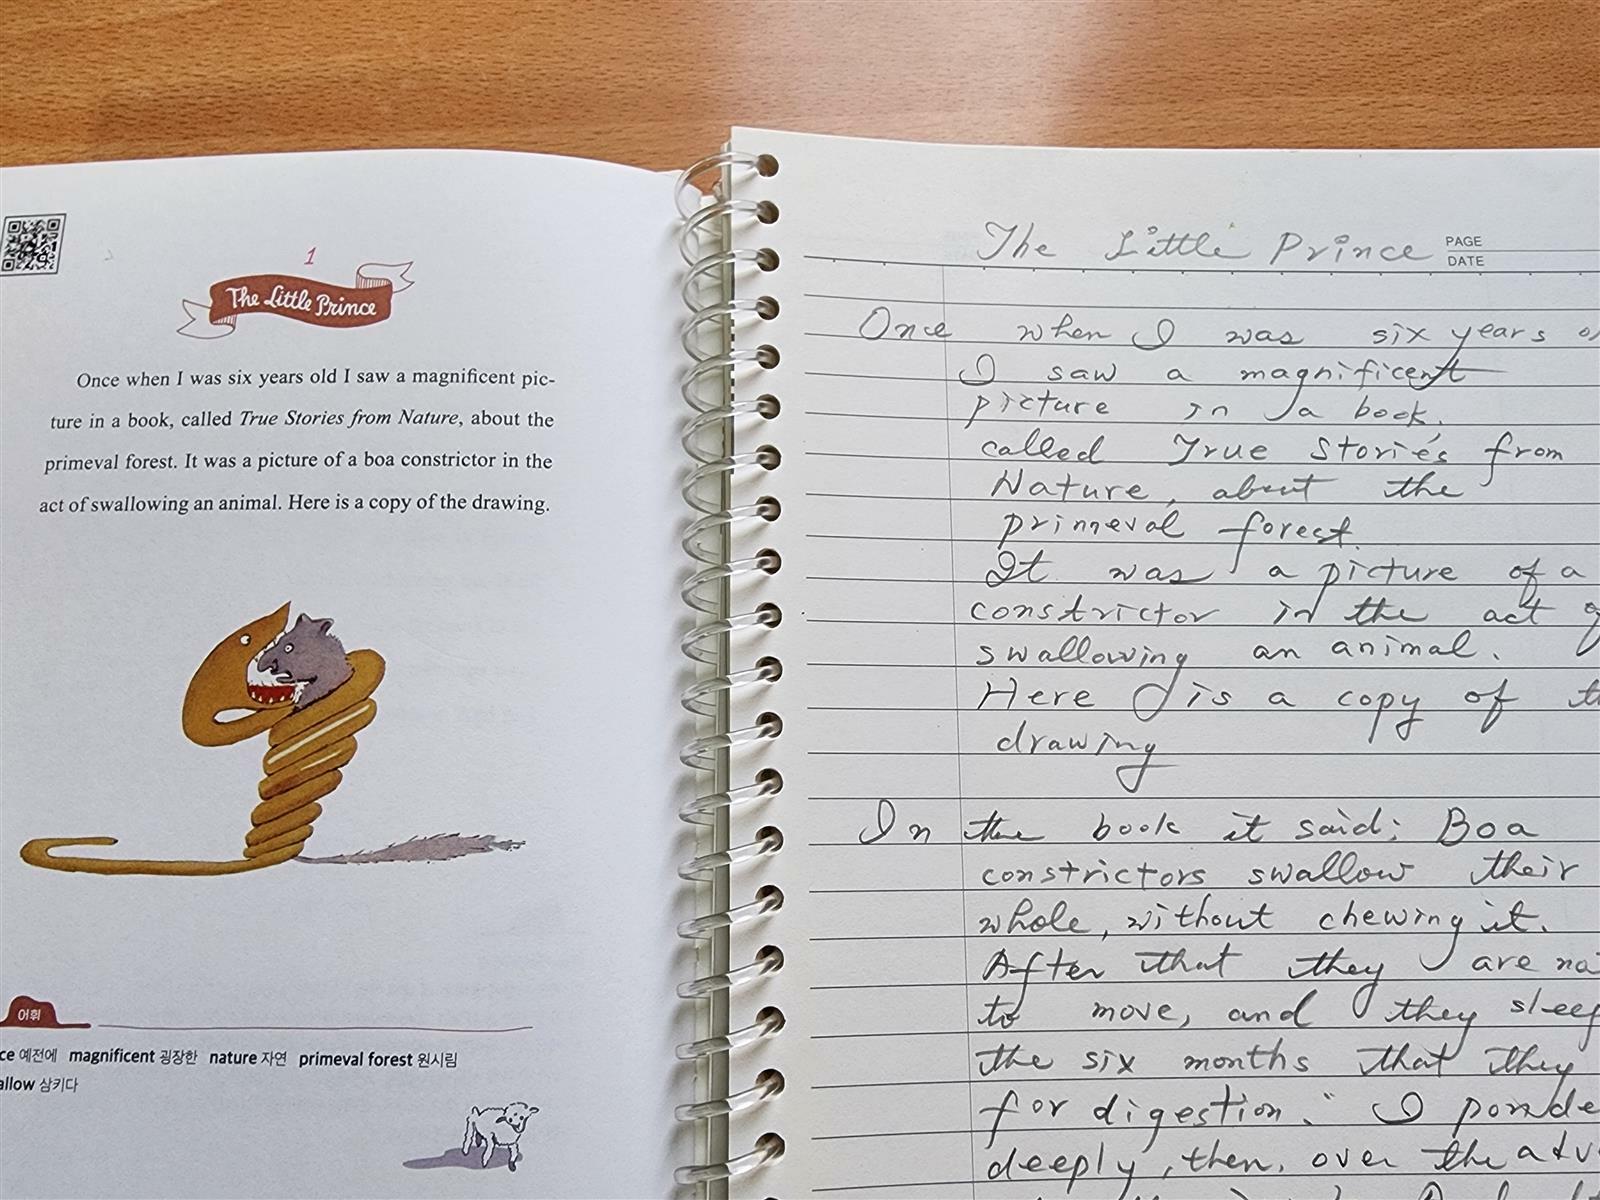 1
The Little Prince
Once when I was six years old I saw a magnificent pic-
ture in a book, called True Stories from Nature, about the
primeval forest. It was a picture of a boa constrictor in the
act of swallowing an animal. Here is a copy of the drawing.
어휘
예전에 magnificent 굉장한 nature 자연 primeval forest 원시림
삼키다
The Little Prince
PAGE
DATE
Once when I was six years
I saw a magnificent
picture in a book.
called True Stories from
Nature, about the
primeval forest.
It was a picture of a
constrictor in the act
swallowing an animal.
Here is a copy of
drawing
In the book it said: Boa
constrictors swallow their
whole, without chewing it.
After that they are
to move, and they sleep
the six months that they
for digestion." I
deeply, then, over the